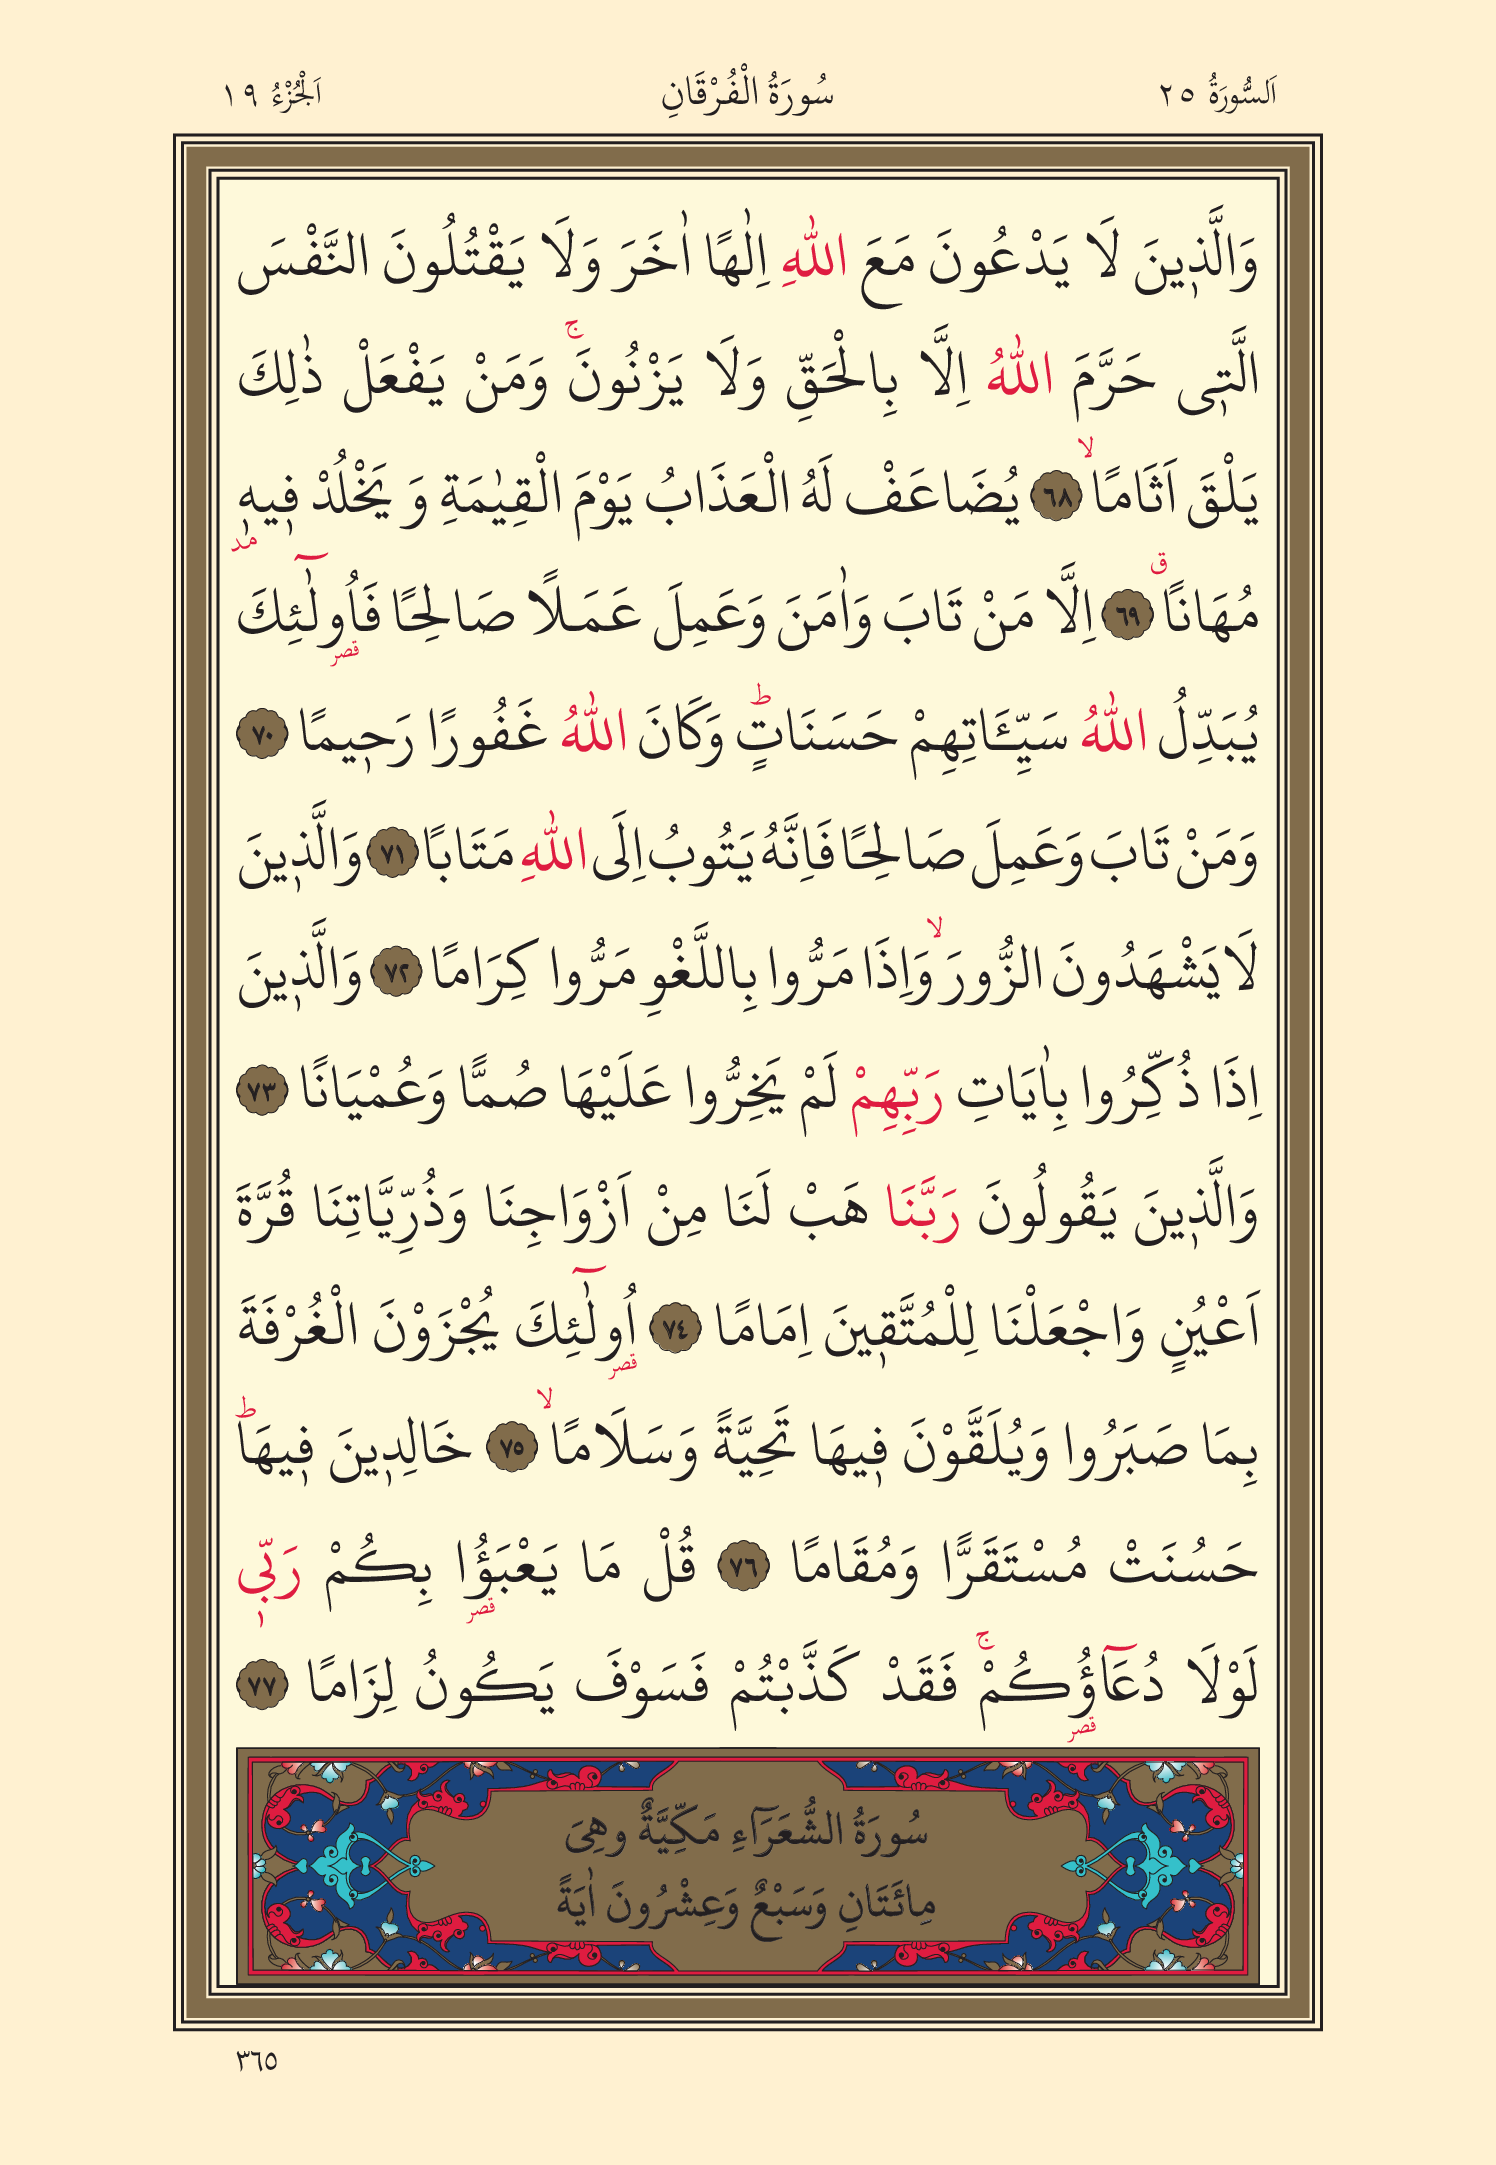 اَلسُّورَةُ ٢٥ سُورَةُ الْفُرْقَانِ اَلْجُزْءُ ١٩
وَالَّذ۪ينَ لَا يَدْعُونَ مَعَ اللّٰهِ اِلٰهًا اٰخَرَ وَلَا يَقْتُلُونَ النَّفْسَ
الَّت۪ى حَرَّمَ اللّٰهُ اِلَّا بِالْحَقِّ وَلَا يَزْنُونَۚ وَمَنْ يَفْعَلْ ذٰلِكَ
يَلْقَ اَثَامًاۙ ٦٨ يُضَاعَفْ لَهُ الْعَذَابُ يَوْمَ الْقِيٰمَةِ وَ يَخْلُدْ ف۪يه۪ مد
مُهَانًاۗ ٦٩ اِلَّا مَنْ تَابَ وَاٰمَنَ وَعَمِلَ عَمَلًا صَالِحًا فَاُو۬لٰٓئِكَ قصر
يُبَدِّلُ اللّٰهُ سَيِّـَٔاتِهِمْ حَسَنَاتٍۜ وَكَانَ اللّٰهُ غَفُورًا رَح۪يمًا ٧٠
وَمَنْ تَابَ وَعَمِلَ صَالِحًا فَاِنَّهُ يَتُوبُ اِلَى اللّٰهِ مَتَابًا ٧١ وَالَّذ۪ينَ
لَا يَشْهَدُونَ الزُّورَۙ وَاِذَا مَرُّوا بِاللَّغْوِ مَرُّوا كِرَامًا ٧٢ وَالَّذ۪ينَ
اِذَا ذُكِّرُوا بِاٰيَاتِ رَبِّهِمْ لَمْ يَخِرُّوا عَلَيْهَا صُمًّا وَعُمْيَانًا ٧٣
وَالَّذ۪ينَ يَقُولُونَ رَبَّنَا هَبْ لَنَا مِنْ اَزْوَاجِنَا وَذُرِّيَّاتِنَا قُرَّةَ
اَعْيُنٍ وَاجْعَلْنَا لِلْمُتَّق۪ينَ اِمَامًا ٧٤ اُو۬لٰٓئِكَ قصر يُجْزَوْنَ الْغُرْفَةَ
بِمَا صَبَرُوا وَيُلَقَّوْنَ ف۪يهَا تَحِيَّةً وَسَلَامًاۙ ٧٥ خَالِد۪ينَ ف۪يهَاۜ
حَسُنَتْ مُسْتَقَرًّا وَمُقَامًا ٧٦ قُلْ مَا يَعْبَؤُ۬ا قصر بِكُمْ رَبّ۪ى
لَوْلَا دُعَآؤُ۬كُمْۚ قصر فَقَدْ كَذَّبْتُمْ فَسَوْفَ يَكُونُ لِزَامًا ٧٧
سُورَةُ الشُّعَرَآءِ مَكِّيَّةٌ وهِىَ
مِائَتَانِ وَسَبْعٌ وَعِشْرُونَ اٰيَةً
٣٦٥